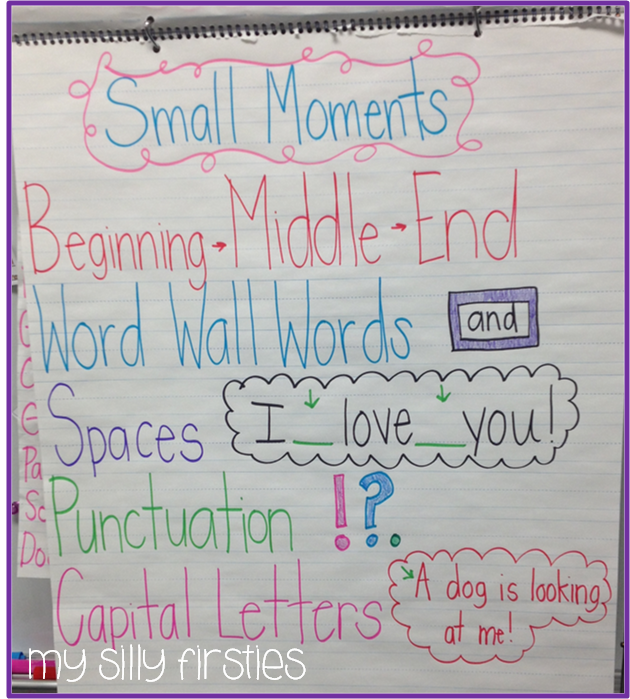 Small Moments
Beginning → Middle → End
Word Wall Words and
Spaces I __ love __ you!
Punctuation ! ? .
Capital Letters A dog is looking
at me!
Pa
Sc
Do
my silly firsties